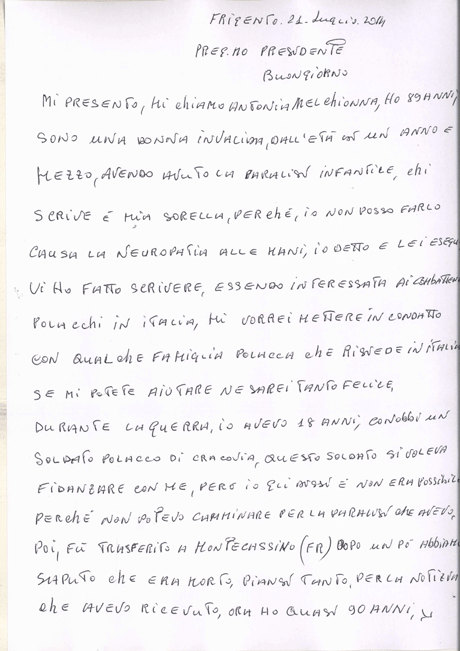 FRIGENTO. 21. Luglio. 2014
PREG.MO PRESIDENTE
BUONGIORNO
MI PRESENTO, MI chiAMO ANTONIA MELCHIONNA, HO 89 ANNI,
SONO UNA DONNA INVALIDA, DALL'ETÀ DI UN ANNO E
MEZZO, AVENDO AVUTO LA PARALISI INFANTILE, chi
SCRIVE È MIA SORELLA, PERché, io NON POSSO FARLO
CAUSA LA NEUROPATIA ALLE MANI, io DETTO E LEI ESEGU
Vi HO FATTO SCRIVERE, ESSENDO INTERESSATA Ai COMBATTEN
POLACCHI IN iTALIA, MI VORREI METTERE IN CONTATTO
CON QUALche FAMIGLIA POLACCA che RISIEDE IN ITALIA
SE Mi POTETE AIUTARE NE SAREI TANTO FELICE,
DURANTE LA GUERRA, io AVEVO 18 ANNI, CONOBBI UN
SOLDATO POLACCO DI CRACOVIA, QUESTO SOLDATO SI VOLEVA
FIDANZARE CON ME, PERÒ io GLI DISSI È NON ERA POSSIBILE
PERCHÉ NON POTEVO CAMMINARE PER LA PARALISI che AVEVO,
POi, FÙ TRASFERITO A MONTECASSINO (FR) DOPO UN PÒ ABBIAMO
SAPUTO che ERA MORTO, PIANSI TANTO, PER LA NOTIZIA
che AVEVO RICEVUTO, ORA HO QUASI 90 ANNI,